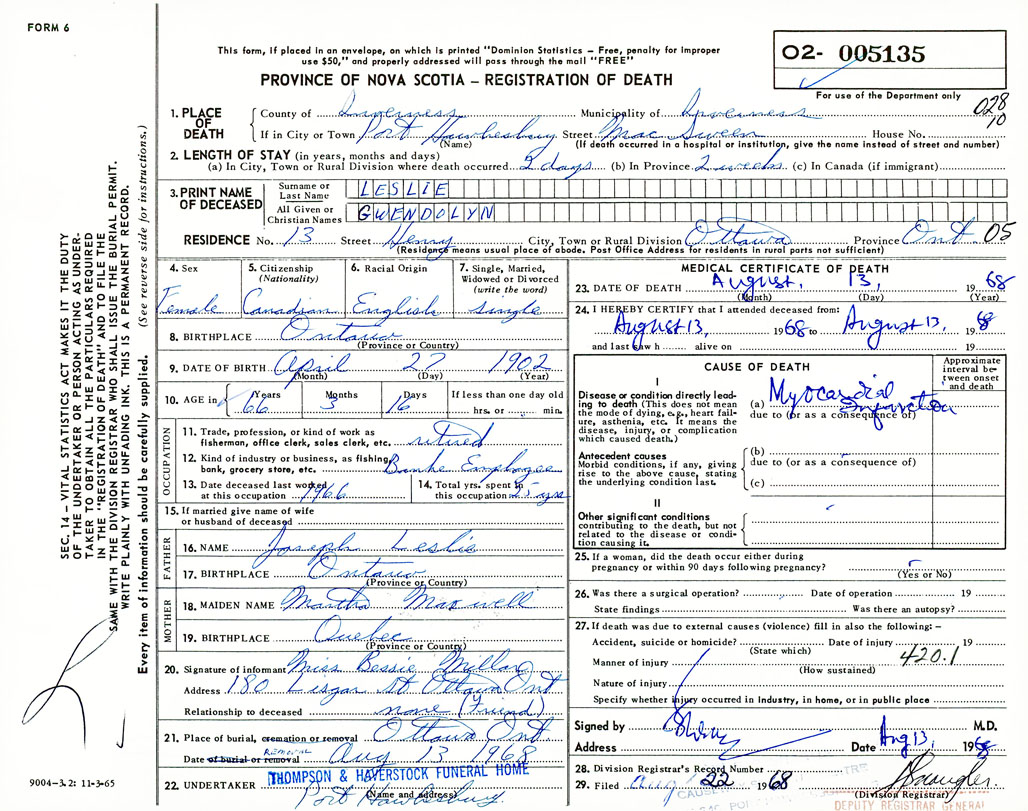 FORM 6
This form, if placed in an envelope, on which is printed "Dominion Statistics – Free, penalty for improper
use $50," and properly addressed will pass through the mail "FREE"
PROVINCE OF NOVA SCOTIA – REGISTRATION OF DEATH
O2- 005135
For use of the Department only
028
10
1. PLACE OF DEATH
County of Inverness Municipality of Inverness
If in City or Town Port Hawkesbury Street Mac Sween House No.
(Name) (If death occurred in a hospital or institution, give the name instead of street and number)
2. LENGTH OF STAY (in years, months and days)
(a) In City, Town or Rural Division where death occurred 2 days (b) In Province 2 weeks (c) In Canada (if immigrant)
3. PRINT NAME OF DECEASED
Surname or Last Name LESLIE
All Given or Christian Names GWENDOLYN
RESIDENCE No. 13 Street Henry City, Town or Rural Division Ottawa Province Ont 05
(Residence means usual place of abode. Post Office Address for residents in rural parts not sufficient)
4. Sex
Female
5. Citizenship (Nationality)
Canadian
6. Racial Origin
English
7. Single, Married, Widowed or Divorced (write the word)
single
8. BIRTHPLACE Ontario
(Province or Country)
9. DATE OF BIRTH April 27 1902
(Month) (Day) (Year)
10. AGE in Years Months Days If less than one day old
66 3 16 hrs. or min.
OCCUPATION
11. Trade, profession, or kind of work as
fisherman, office clerk, sales clerk, etc. retired
12. Kind of industry or business, as fishing,
bank, grocery store, etc. Banke Employee
13. Date deceased last worked
at this occupation 1966
14. Total yrs. spent in
this occupation 25 yrs
15. If married give name of wife
or husband of deceased
FATHER
16. NAME Joseph Leslie
17. BIRTHPLACE Ontario
(Province or Country)
MOTHER
18. MAIDEN NAME Martha Maxwell
19. BIRTHPLACE Quebec
(Province or Country)
20. Signature of informant Miss Bessie Millar
Address 180 Lisgar St Ottawa Ont
Relationship to deceased none (Friend)
21. Place of burial, cremation or removal Ottawa Ont
REMOVAL
Date of burial or removal Aug 13 1968
THOMPSON & HAVERSTOCK FUNERAL HOME
22. UNDERTAKER Port Hawkesbury
(Name and address)
MEDICAL CERTIFICATE OF DEATH
23. DATE OF DEATH August, 13, 1968
(Month) (Day) (Year)
24. I HEREBY CERTIFY that I attended deceased from:
August 13, 1968 to August 13, 1968
and last saw h alive on 19
CAUSE OF DEATH
Approximate interval between onset and death
I
Disease or condition directly leading to death (This does not mean the mode of dying, e.g., heart failure, asthenia, etc. It means the disease, injury, or complication which caused death.)
(a) Myocardial Infarction
due to (or as a consequence of)
Antecedent causes
Morbid conditions, if any, giving rise to the above cause, stating the underlying condition last.
(b)
due to (or as a consequence of)
(c)
II
Other significant conditions
contributing to the death, but not related to the disease or condition causing it.
25. If a woman, did the death occur either during
pregnancy or within 90 days following pregnancy?
(Yes or No)
26. Was there a surgical operation? Date of operation 19
State findings Was there an autopsy?
27. If death was due to external causes (violence) fill in also the following: –
Accident, suicide or homicide? Date of injury 19
(State which)
420.1
Manner of injury
(How sustained)
Nature of injury
Specify whether injury occurred in Industry, in home, or in public place
Signed by M.D.
Address Date Aug 13, 1968
28. Division Registrar's Record Number
29. Filed Aug 22 1968
(Division Registrar)
DEPUTY REGISTRAR GENERAL
SEC. 14 – VITAL STATISTICS ACT MAKES IT THE DUTY
OF THE UNDERTAKER OR PERSON ACTING AS UNDER-
TAKER TO OBTAIN ALL THE PARTICULARS REQUIRED
IN THE "REGISTRATION OF DEATH" AND TO FILE THE
SAME WITH THE DIVISION REGISTRAR WHO SHALL ISSUE THE BURIAL PERMIT.
WRITE PLAINLY WITH UNFADING INK. THIS IS A PERMANENT RECORD.
Every item of information should be carefully supplied. (See reverse side for instructions.)
9004-3.2: 11-3-65